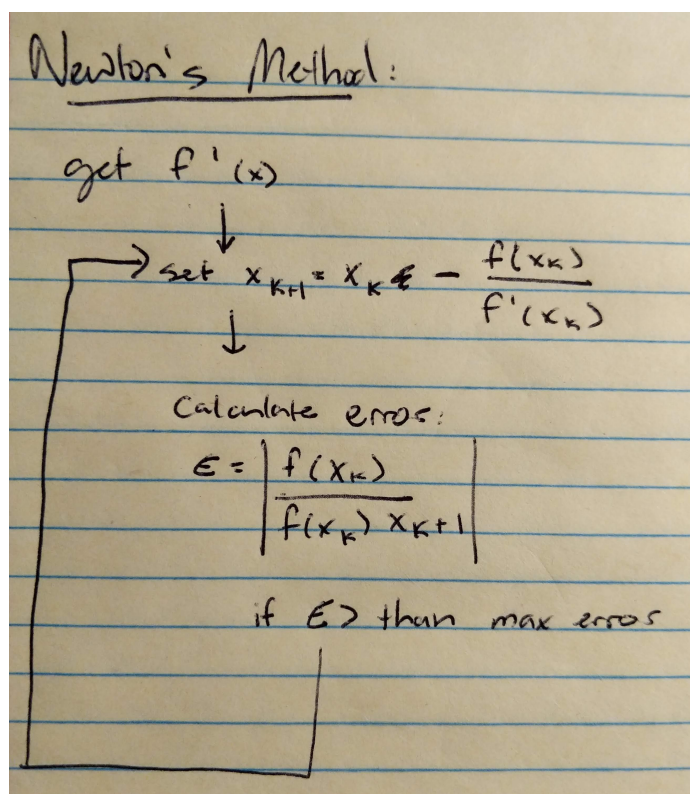 Newton's Method:
get f'(x)
set x_{k+1} = x_k - \frac{f(x_k)}{f'(x_k)}
Calculate error:
ε = \left| \frac{f(x_k)}{f(x_k) x_{k+1}} \right|
if ε > than max error